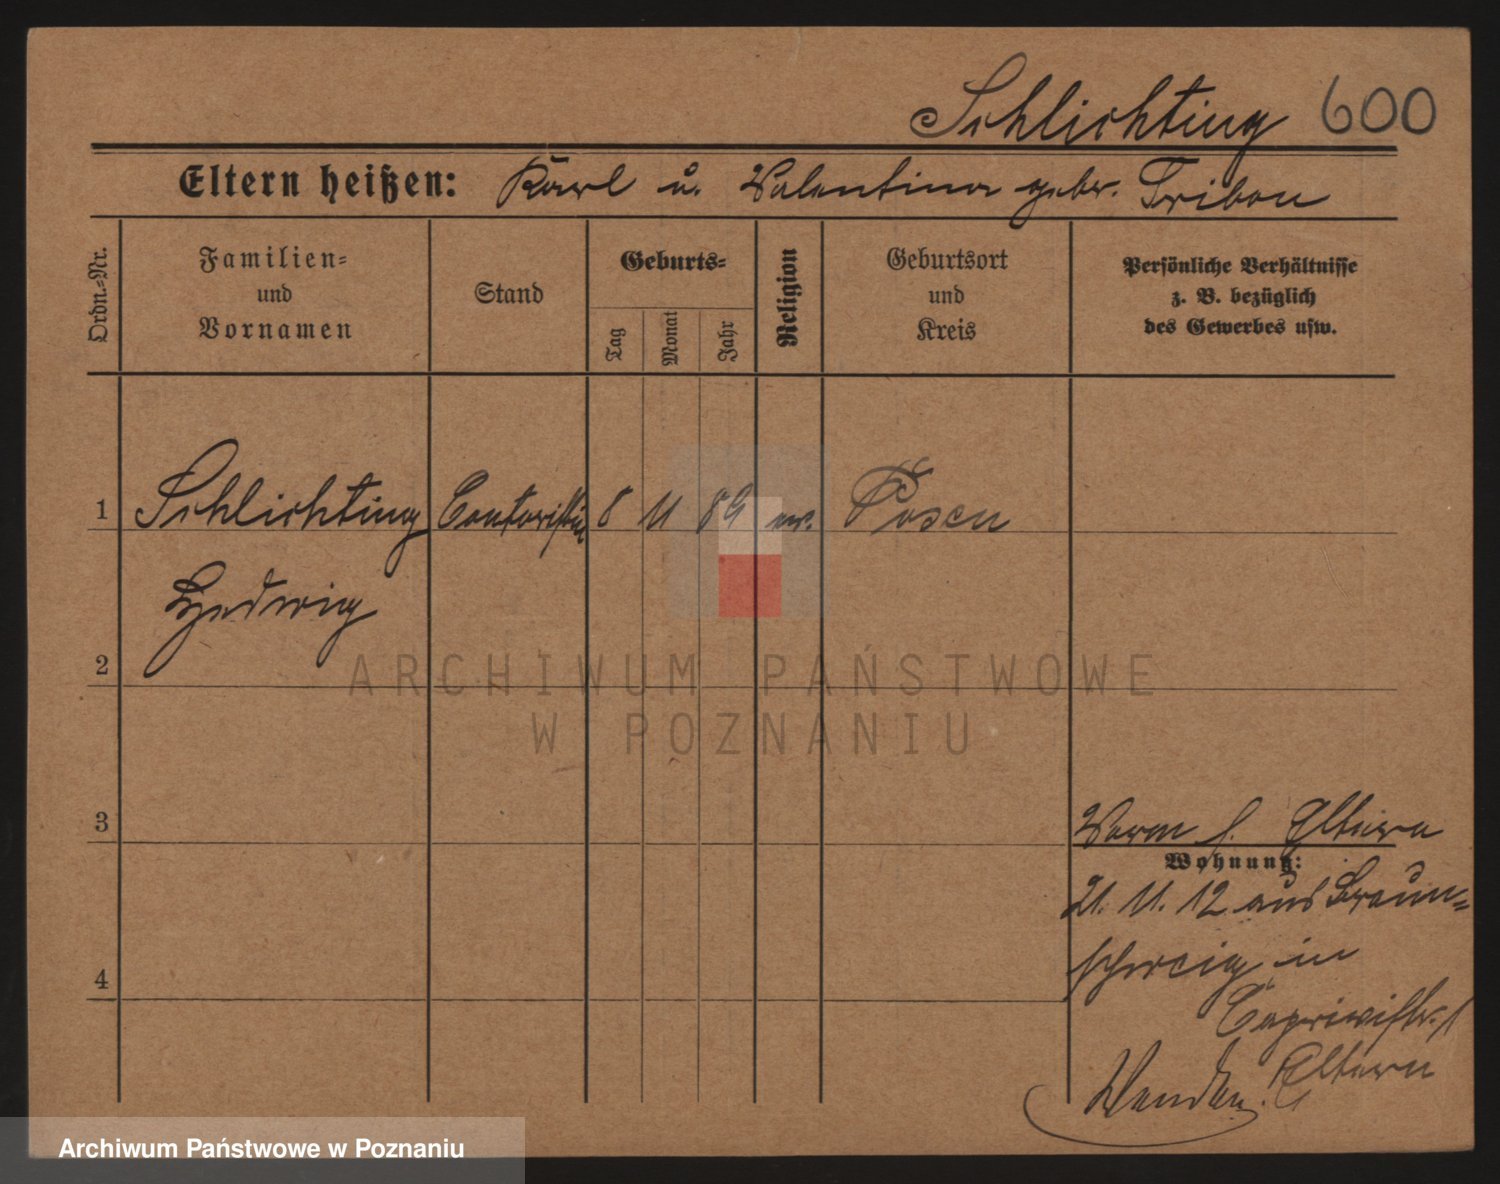 Schlichting 600
Eltern heißen: Karl u. Valentina gebr. Tribon
Ordn.-Nr.
Familien-
und
Vornamen
Stand
Geburts-
Tag
Monat
Jahr
Religion
Geburtsort
und
Kreis
Persönliche Verhältnisse
z. B. bezüglich
des Gewerbes usw.
1 Schlichting Contoristin 8 11 89 ev. Posen
Hedwig
2
3
Vorm s. Eltern
Wohnung:
21. 11. 12 aus Braun=
schweig in
4
Caprivistr. 1
Eltern
Wenden.
ARCHIWUM PAŃSTWOWE
W POZNANIU
Archiwum Państwowe w Poznaniu